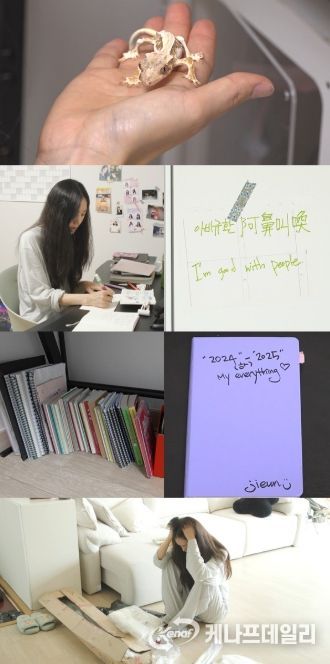 아비규환 阿鼻叫喚
I'm good with people
"2024" "2025"
My everything♡
jieun
Kenaf
케나프데일리